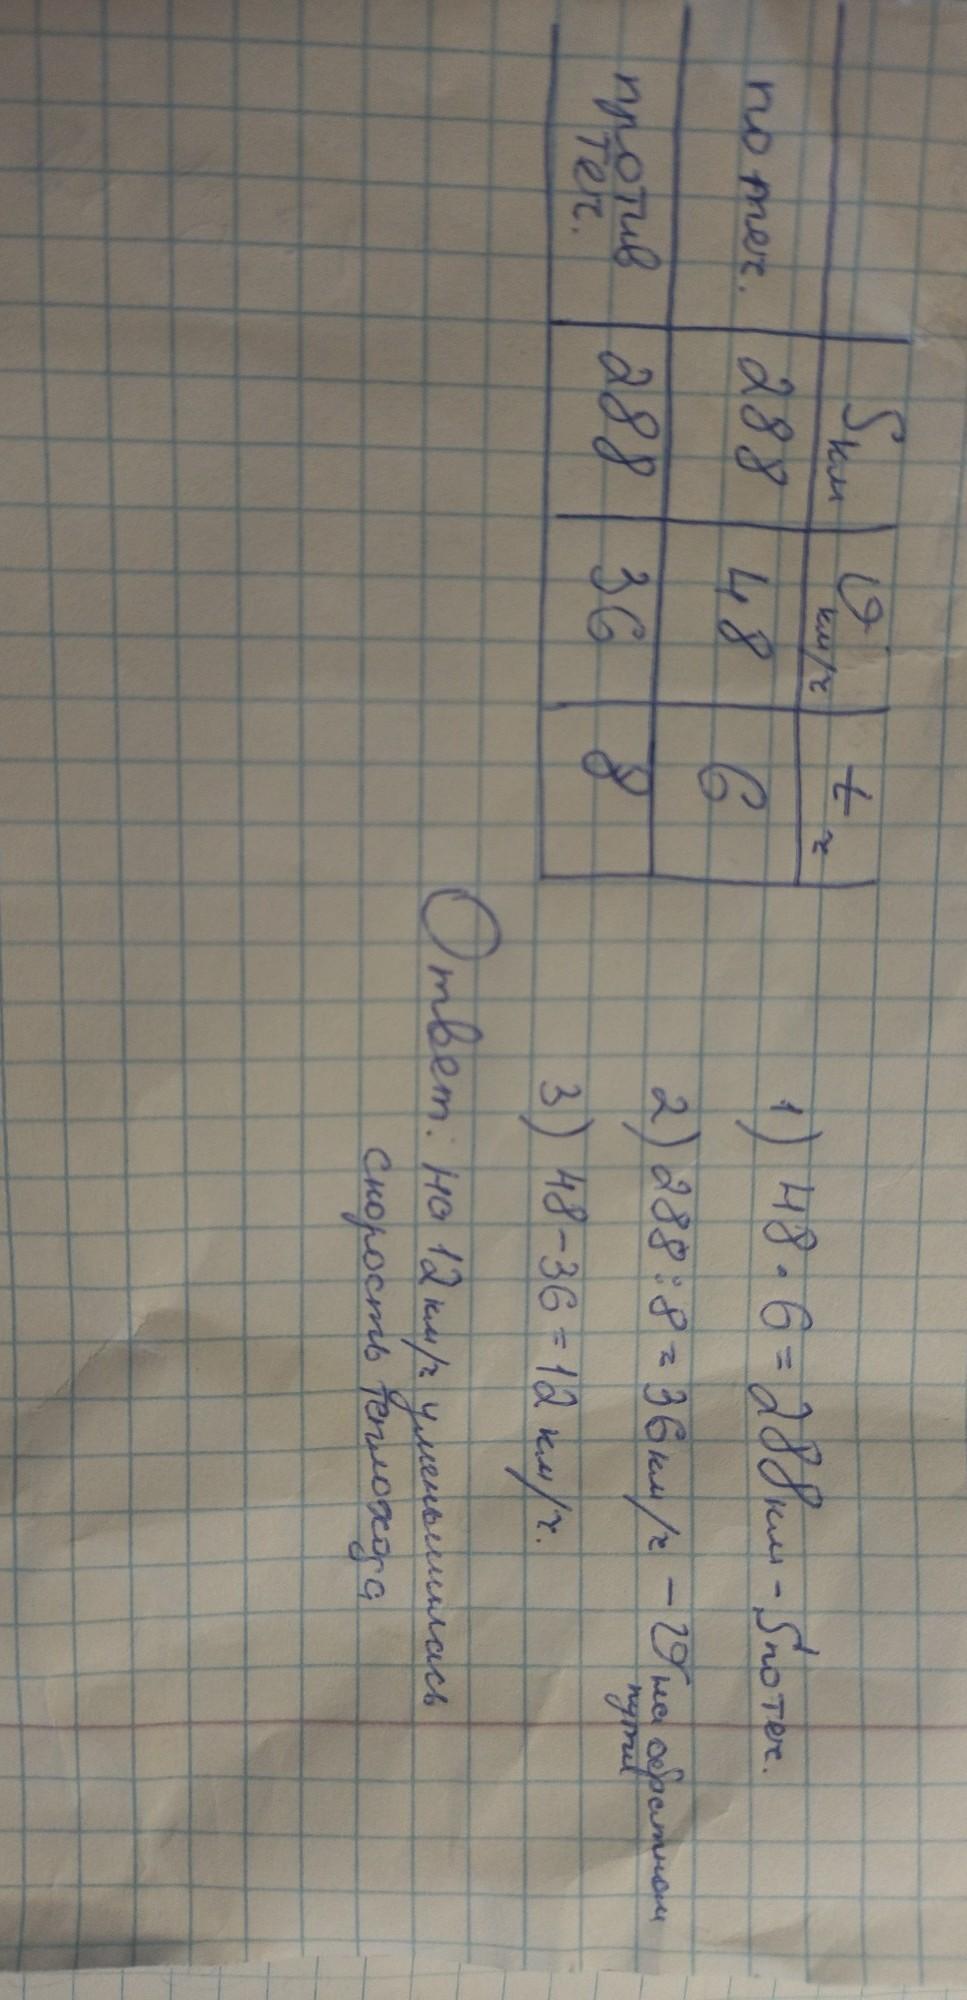 S км v км/ч t ч
по теч. 288 48 6
против теч. 288 36 8
1) 48 · 6 = 288 км - S по теч.
2) 288 : 8 = 36 км/ч - v на обратном пути
3) 48 - 36 = 12 км/ч.
Ответ: на 12 км/ч уменьшилась
скорость теплохода